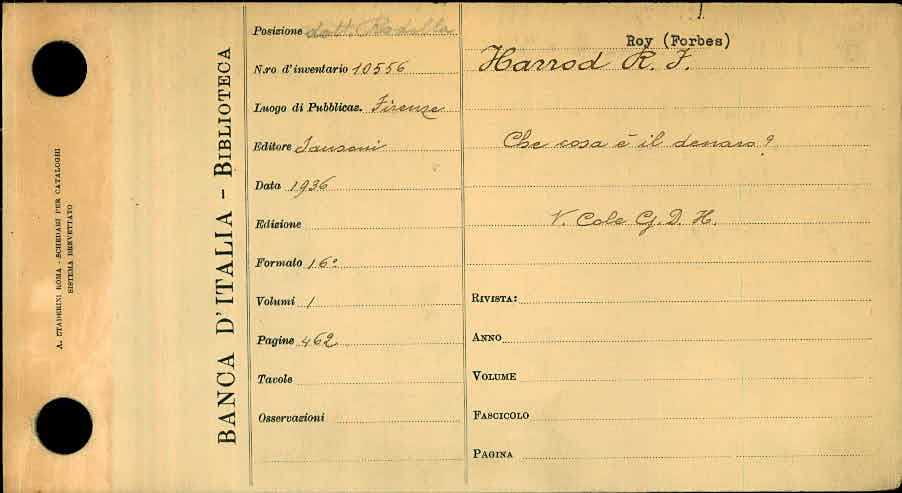 A. STADERINI ROMA - SCHEDARI PER CATALOGHI
SISTEMA BREVETTATO
BANCA D'ITALIA - BIBLIOTECA
Posizione dott.
N.ro d'inventario 10556
Luogo di Pubblicaz. Firenze
Editore Sansoni
Data 1936
Edizione
Formato 16°
Volumi 1
Pagine 462
Tavole
Osservazioni
Roy (Forbes)
Harrod R. F.
Che cosa è il denaro?
V. Cole G. D. H.
RIVISTA:
ANNO
VOLUME
FASCICOLO
PAGINA